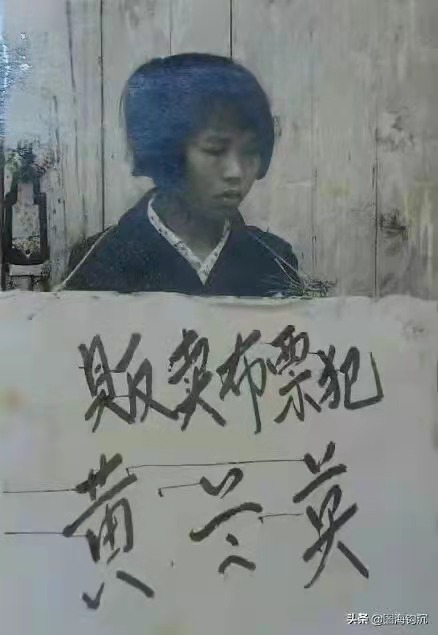 贩卖布票犯
黄兰英
头条 @图海钩沉